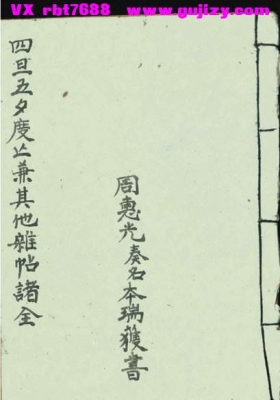 VX rbt7688 www.gujizy.com
周惠光奏名本瑞獲書
四旦五夕慶上兼其他雜帖諸全